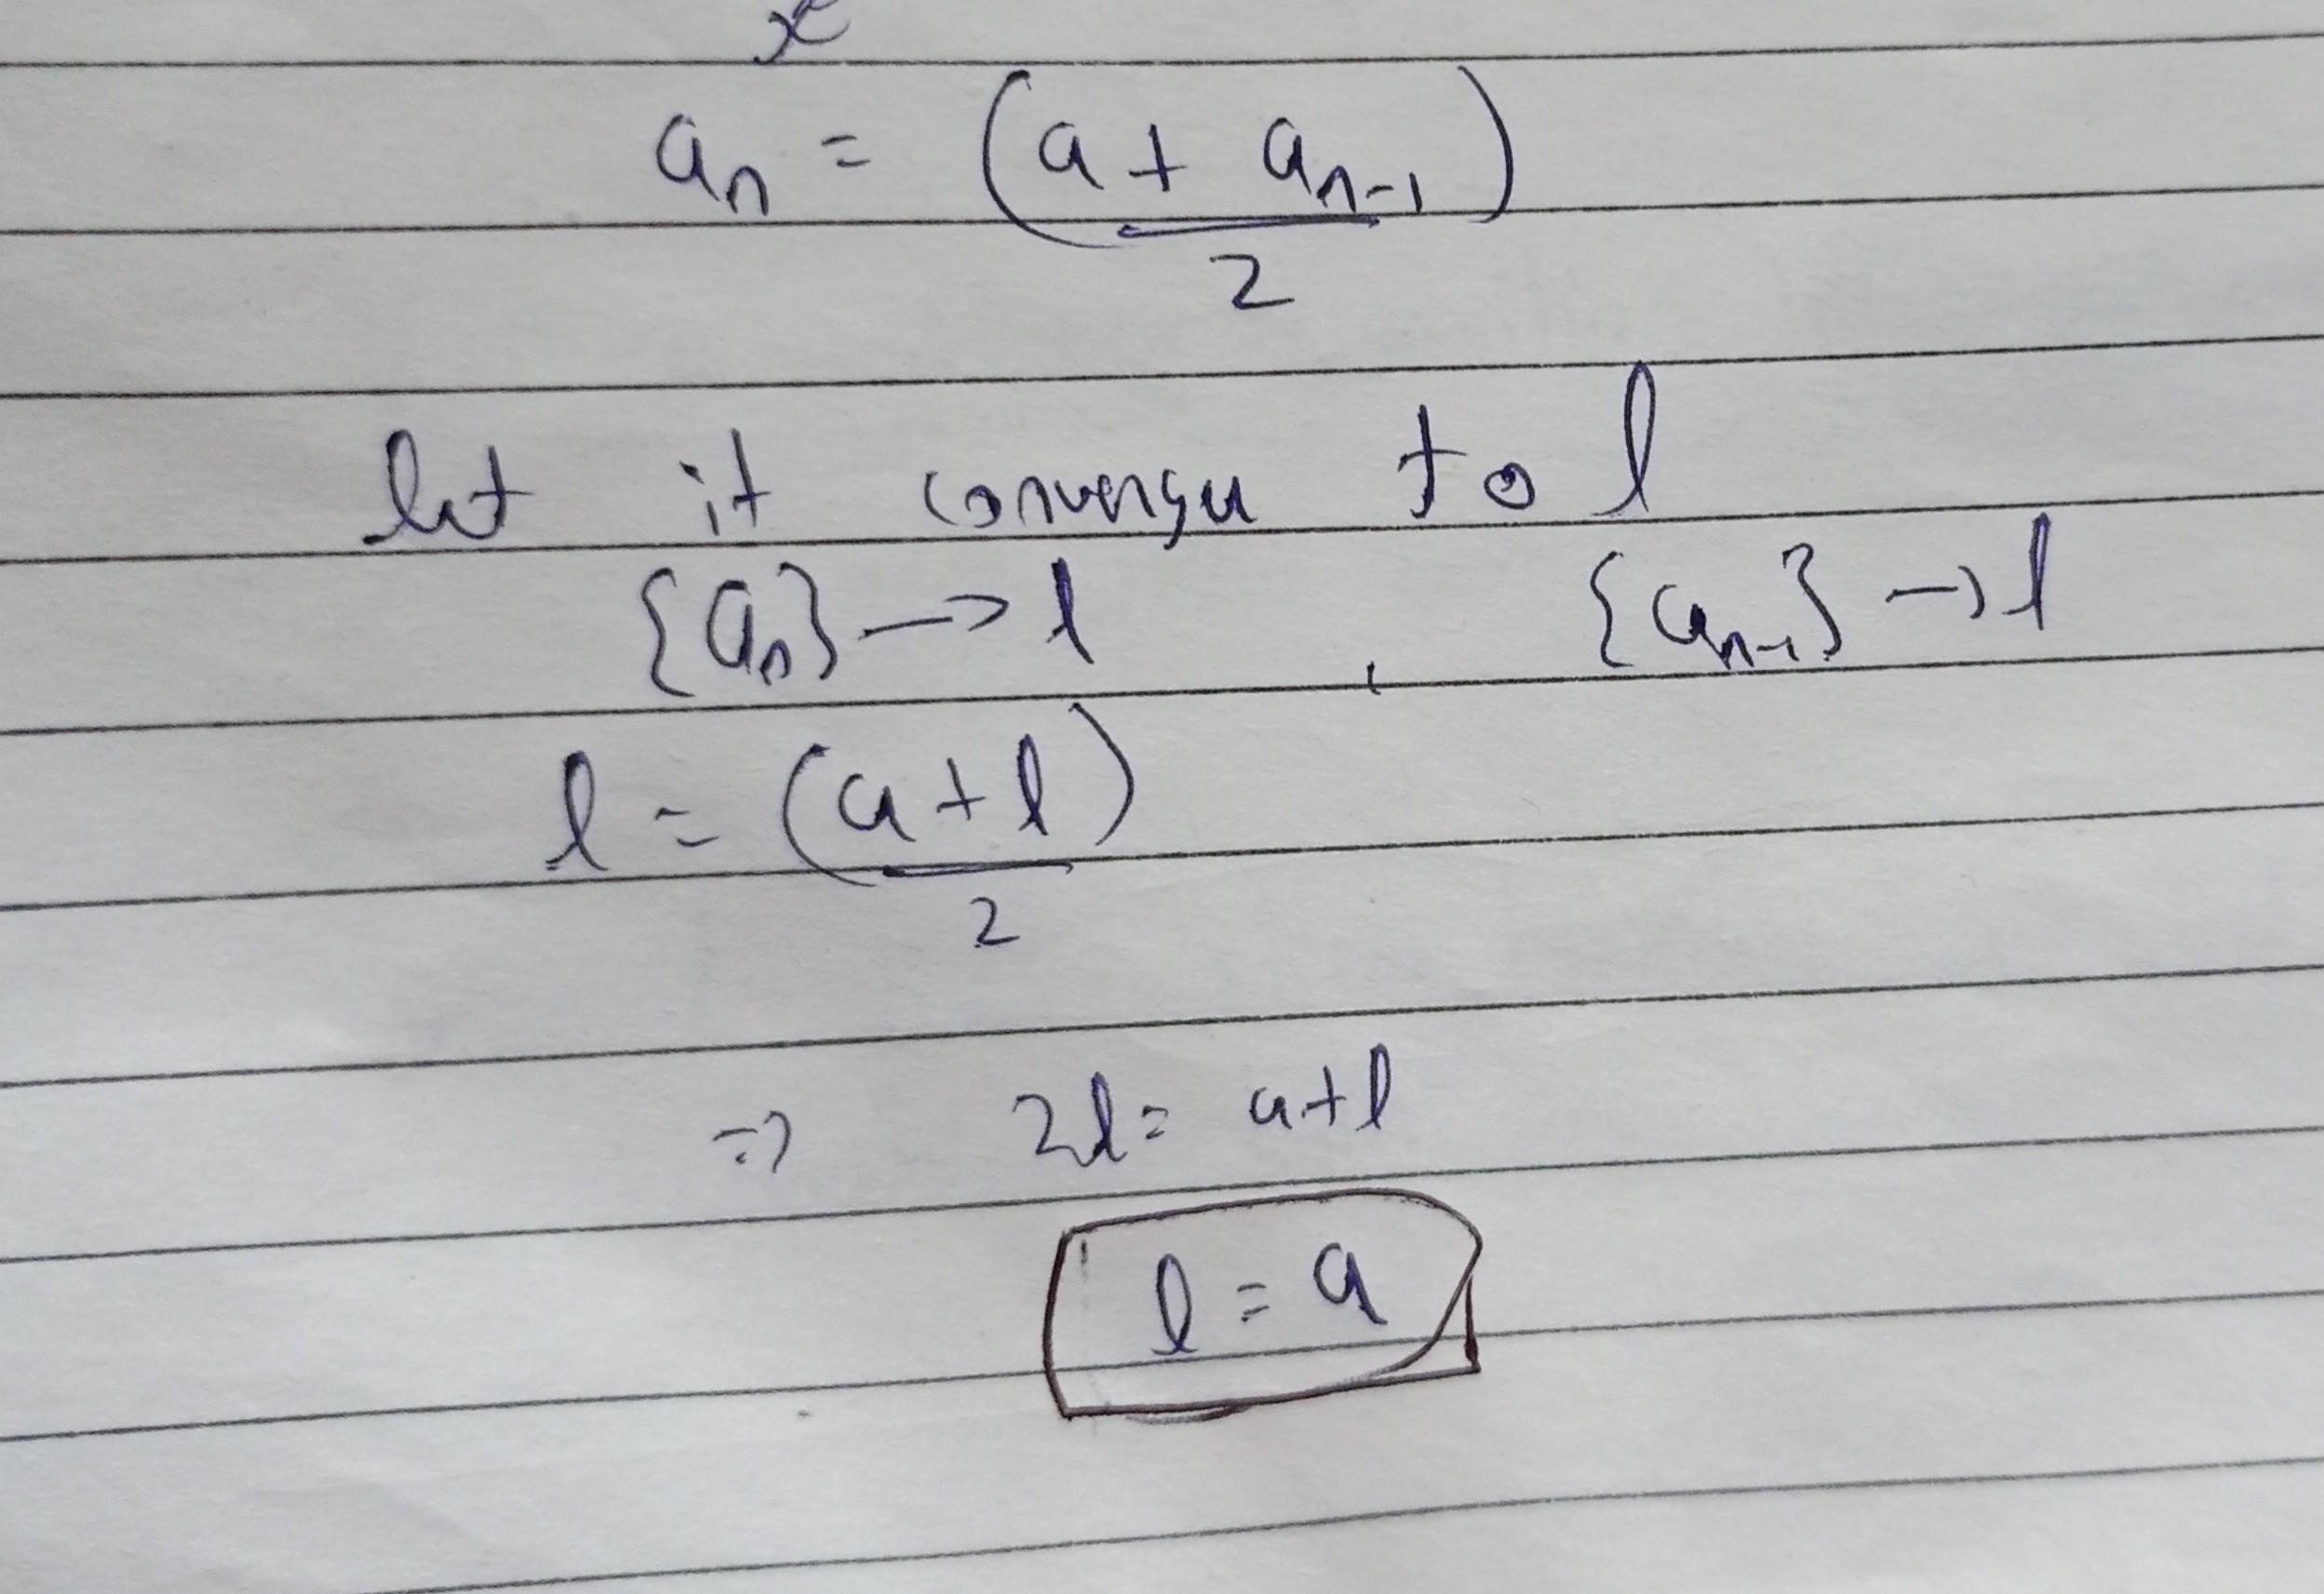 x
aₙ = (a + aₙ₋₁)
2
let it converge to l
{aₙ} → l , {aₙ₋₁} → l
l = (a + l)
2
⇒ 2l = a + l
l = a